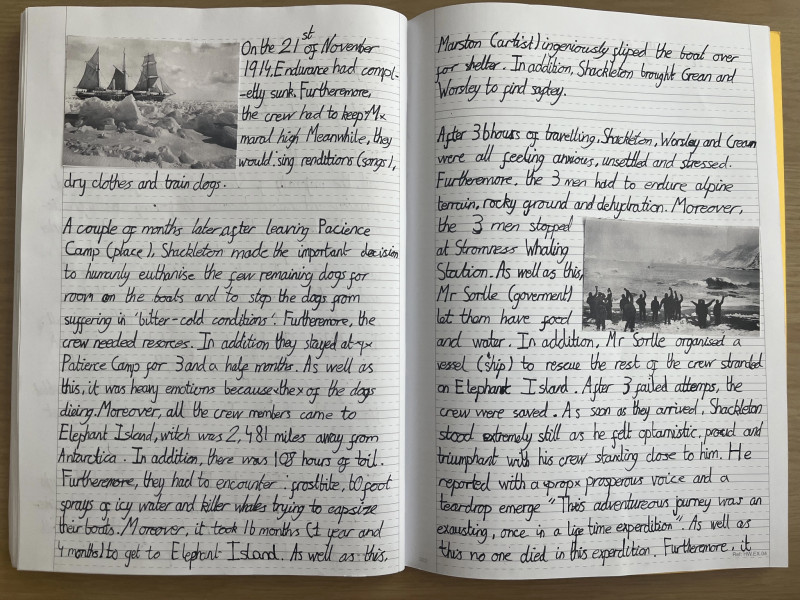 On the 21st of November
1914, Endurance had compl-
-etly sunk. Furthermore,
the crew had to keep
maral high Meanwhile, they
would sing renditions (songs),
dry clothes and train dogs.
A couple of months later, after leaving Pacience
Camp (place), Shackleton made the important decision
to humanly euthanise the few remaining dogs for
room on the boats and to stop the dogs from
suffering in 'bitter-cold conditions'. Furthermore, the
crew needed resorces. In addition they stayed at
Patience Camp for 3 and a half months. As well as
this, it was heavy emotions because the of the dogs
dieing. Moreover, all the crew members came to
Elephant Island, witch was 2,481 miles away from
Antarctica. In addition, there was 108 hours of toil.
Furthermore, they had to encounter: frostbite, 60 foot
sprays of icy water and killer whales trying to capsize
their boats. Moreover, it took 16 months (1 year and
4 months) to get to Elephant Island. As well as this,
Marston (artist) ingeniously fliped the boat over
for shelter. In addition, Shackleton brought Crean and
Worsley to find saftey.
After 36 hours of travelling, Shackleton, Worsley and Crean
were all feeling anxious, unsettled and stressed.
Furthermore, the 3 men had to endure alpine
terrain, rocky ground and dehydration. Moreover,
the 3 men stopped
at Stromness Whaling
Station. As well as this,
Mr Sorlle (goverment)
let them have food
and water. In addition, Mr Sorlle organised a
vessel (ship) to rescue the rest of the crew stranded
on Elephant Island. After 3 failed attemps, the
crew were saved. As soon as they arrived, Shackleton
stood extremely still as he felt optamistic, proud and
triumphant with his crew standing close to him. He
reported with a prosperous voice and a
teardrop emerge "This adventureous journey was an
exausting, once in a life time experdition". As well as
this no one died in this experdition. Furthermore, it